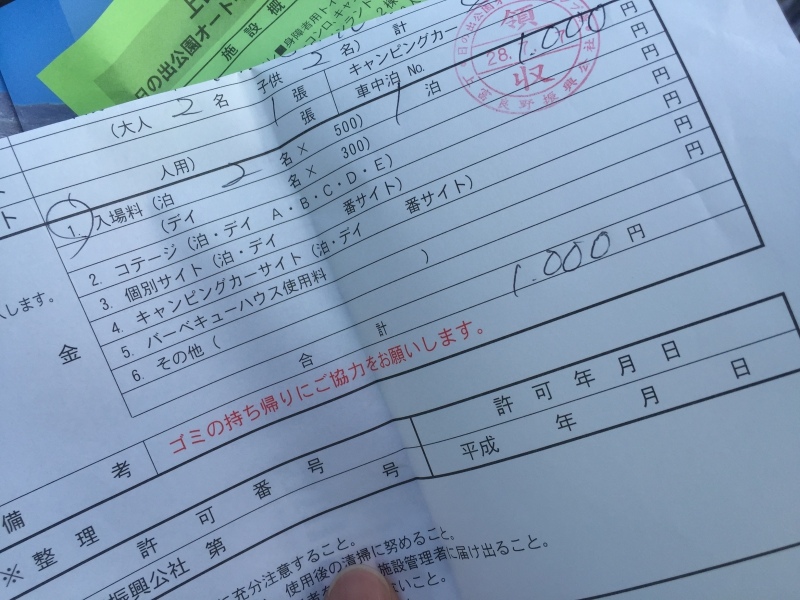 日の出公園オート
施設概
■身障者用トイ
コンロ、キャ
(大人 2 名 子供 2 名) 計
1 張 キャンピングカー
張 車中泊 No.
人用) 1 泊
1. 入場料 (泊 2 名 × 500) 1.000 円
(デイ 名 × 300) 円
2. コテージ (泊・デイ A・B・C・D・E) 円
3. 個別サイト (泊・デイ 番サイト) 円
4. キャンピングカーサイト (泊・デイ 番サイト) 円
5. バーベキューハウス使用料 円
6. その他 ( )
合 計 1.000 円
領収
28. 7.
上富良野振興公社
入します。
金
ゴミの持ち帰りにご協力をお願いします。
備 考
※ 整 理 許 可 番 号 許 可 年 月 日
振興公社 第 号 平成 年 月 日
に充分注意すること。
使用後の清掃に努めること。
施設管理者に届け出ること。
いこと。